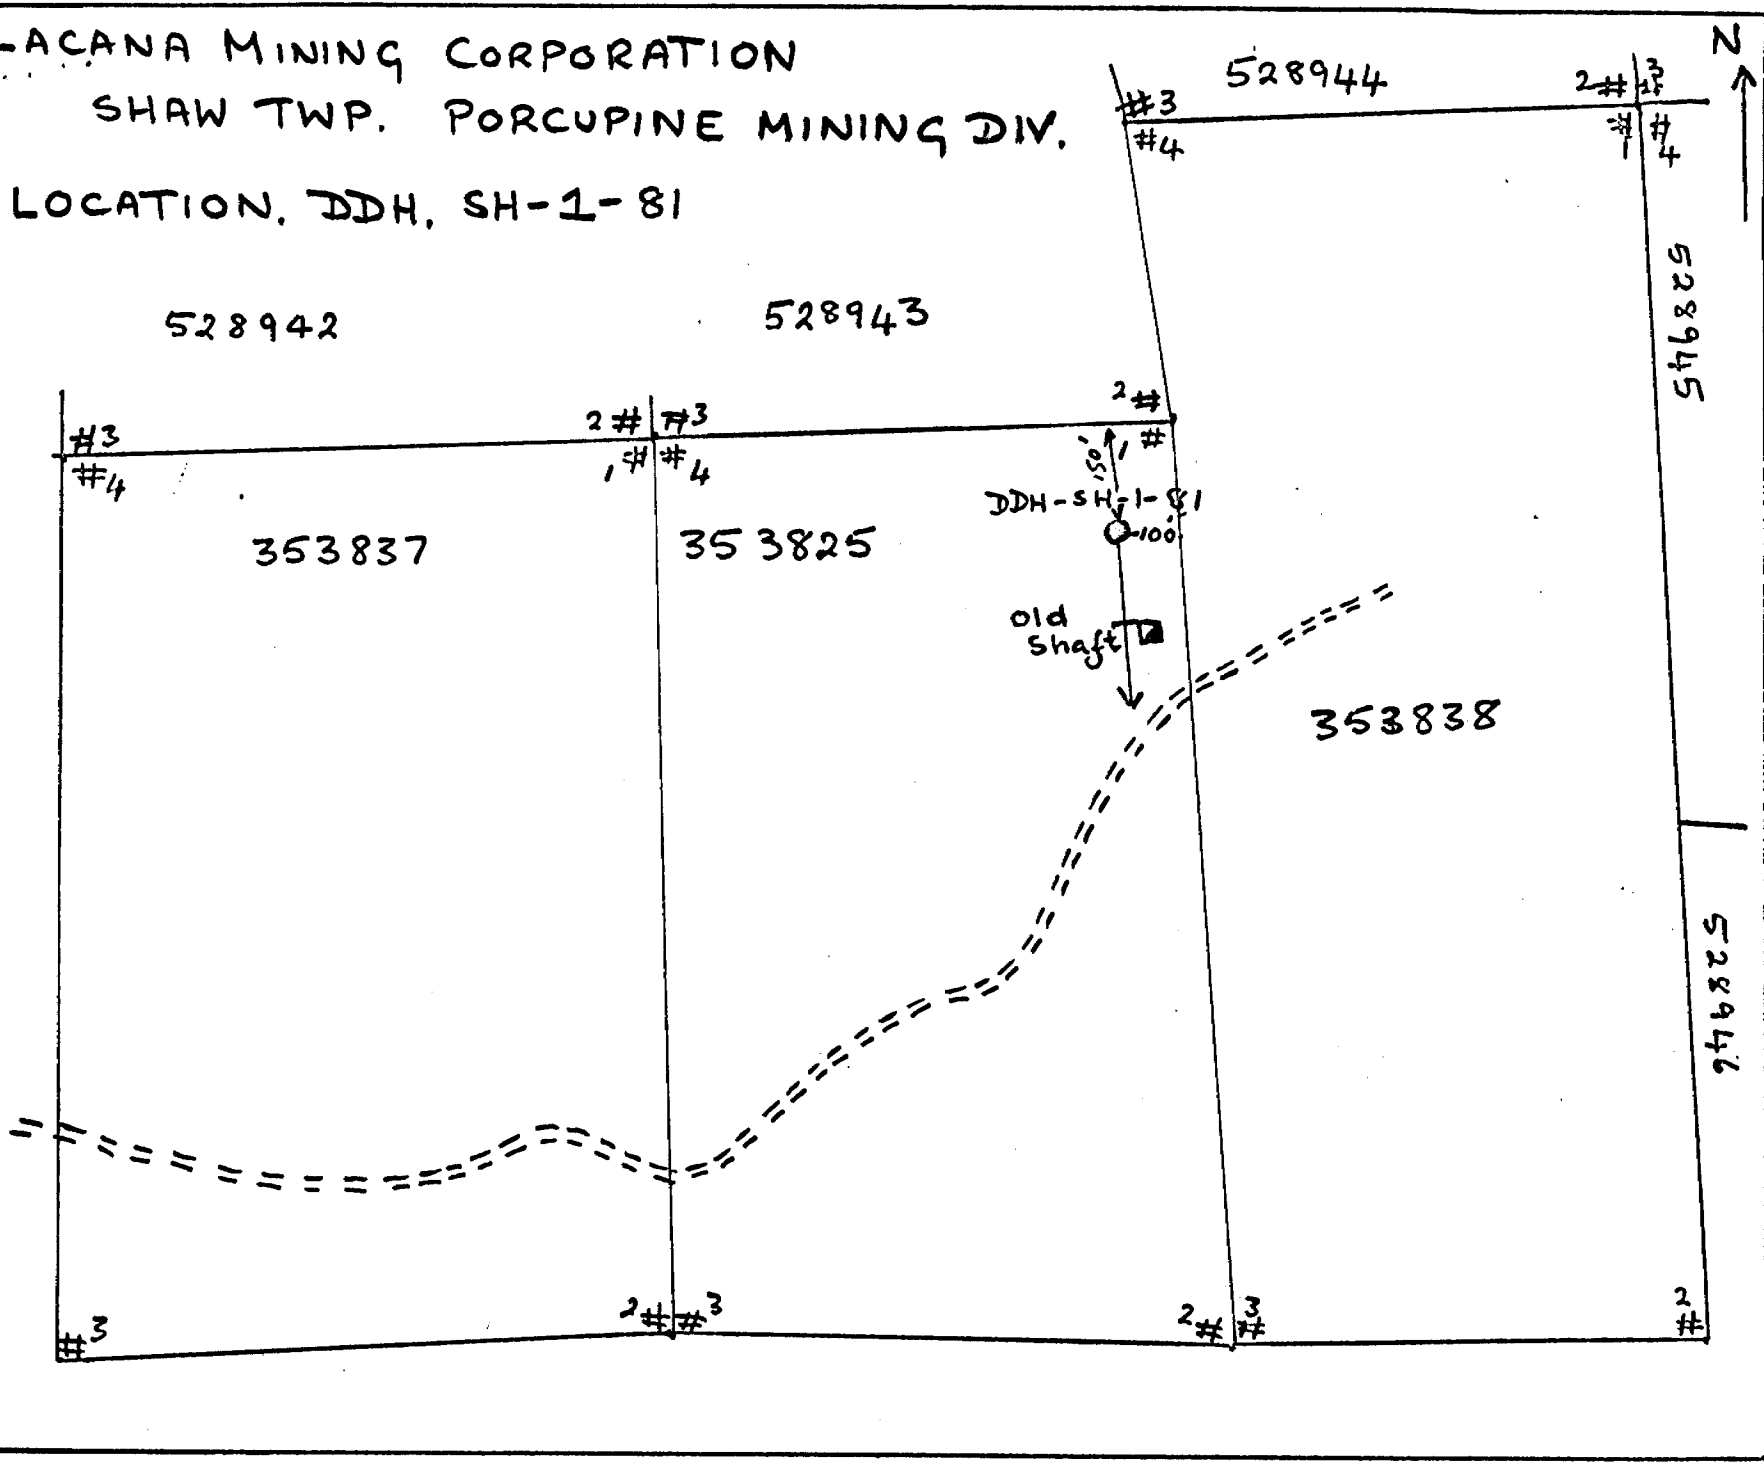 -ACANA MINING CORPORATION
SHAW TWP. PORCUPINE MINING DIV.
LOCATION. DDH. SH-1-81
N
528944
#3
#4
2#
3
#
1
#
4
528945
528942
528943
#3
#4
2#
#3
1#
#4
2#
1#
150'
DDH-SH-1-81
100'
353837
353825
Old
Shaft
353838
528946
#3
2#
#3
2#
3#
2#